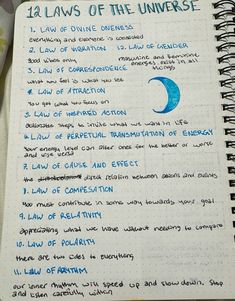 12 LAWS OF THE UNIVERSE
1. LAW OF DIVINE ONENESS
Everything and everyone is connected
2. LAW OF VIBRATION
Good vibes only
12. LAW OF GENDER
masculine and feminine
energies exist in all
things
3. LAW OF CORRESPONDENCE
what you feel is what you see
4. LAW OF ATTRACTION
You get what you focus on
5. LAW OF INSPIRED ACTION
actionable steps to invite what we want in life
6. LAW OF PERPETUAL TRANSMUTATION OF ENERGY
Your energy level can alter ones for the better or worse
and vice versa
7. LAW OF CAUSE AND EFFECT
the direct relation between actions and events
8. LAW OF COMPESATION
You must contribute in some way towards your goal
9. LAW OF RELATIVITY
appreciating what we have without needing to compare
10. LAW OF POLARITY
there are two sides to everything
11. LAW OF RHYTHM
our inner rhythm will speed up and slow down. Stop
and listen carefully within